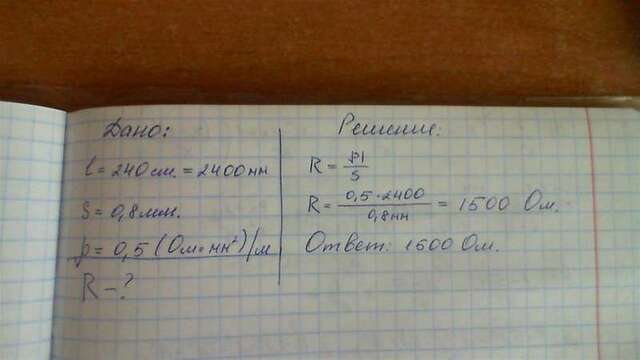 Дано:
l = 240 см. = 2400 мм
S = 0,8 мм.
р = 0,5 (Ом•мм²)/м
R - ?
Решение:
R = pl/S
R = 0,5•2400/0,8мм = 1500 Ом.
Ответ: 1500 Ом.